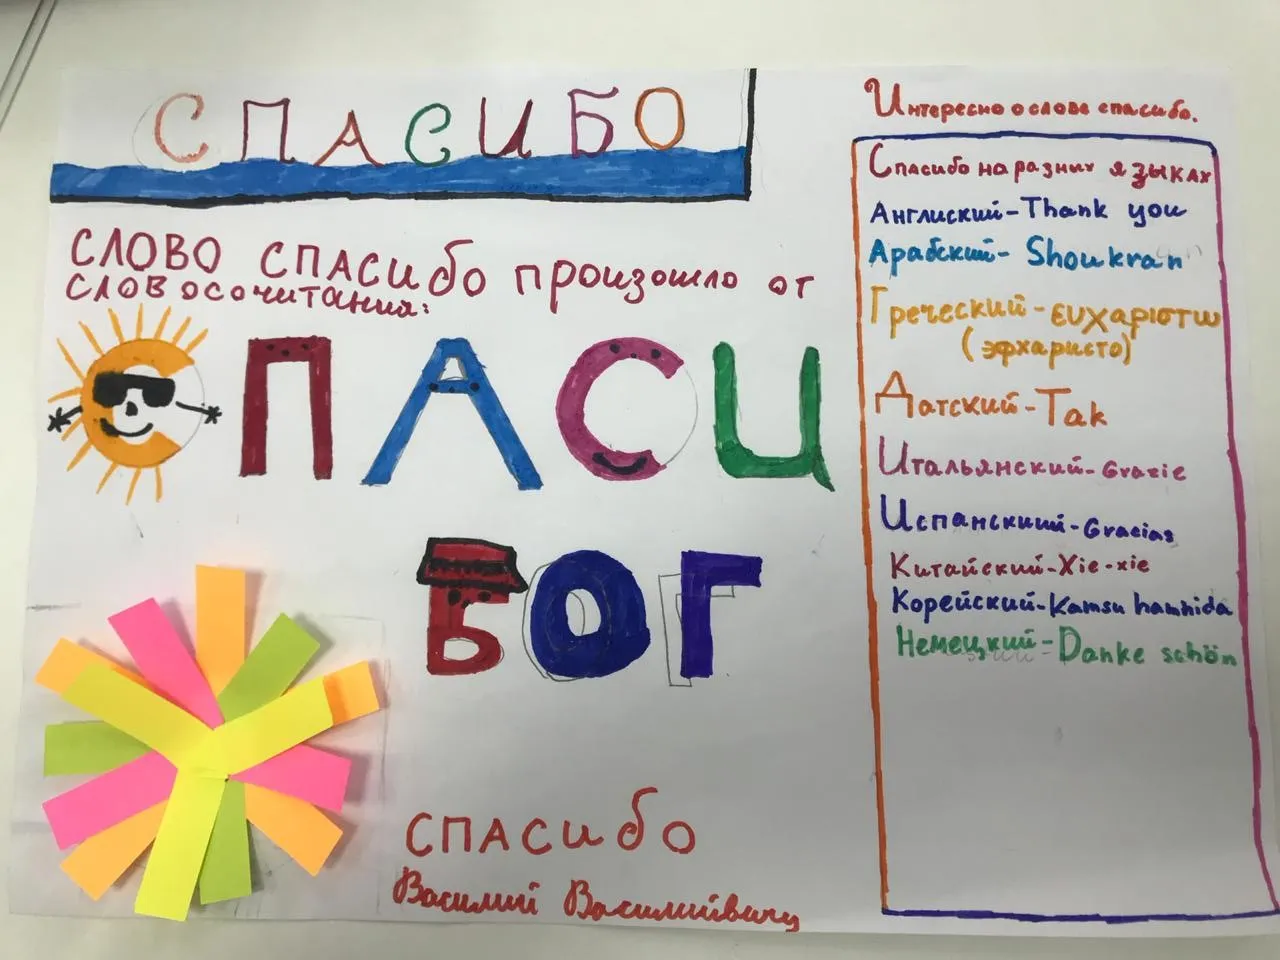 СПАСИБО
СЛОВО СПАСИБО произошло от
словосочитания:
СПАСИ
БОГ
СПАСИБО
Василий Василийвичу
Интересно о слове спасибо.
Спасибо на разных языках
Англиский-Thank you
Арабский-Shoukran
Греческий-ευχαριστω
(эфхаристо)
Датский-Tak
Итальянский-Grazie
Испанский-Gracias
Китайский-Xie-xie
Корейский-Kamsu hamnida
Немецкий-Danke schön